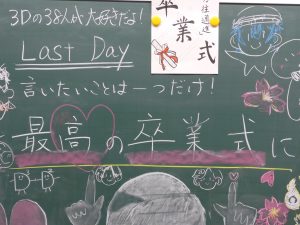 3Dの38人が大好きだよ!
Last Day
言いたいことは一つだけ!
最高の卒業式に
卒業式